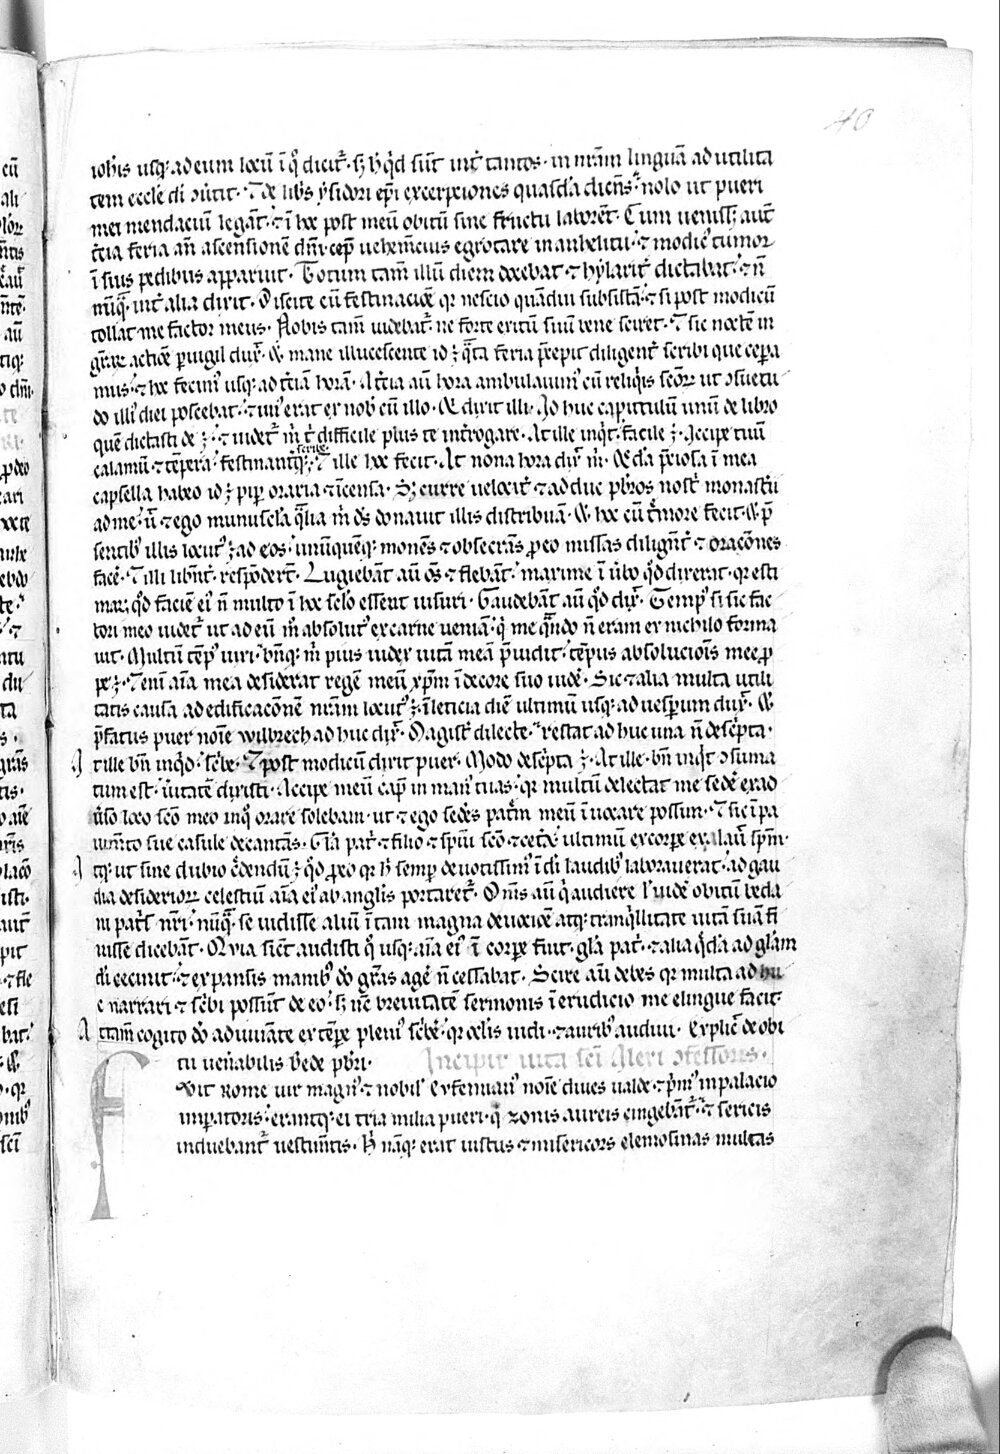 40
ioħis usq; ad eum locū ī q̊ dicit᷑ · sꝫ h̾ q̇d sūt int̾ tantos · in nr̄am linguā ad utilita
tem eccl̄e di ꝯu̾tit · ⁊ de lib̾s ysidori ep̄i excerpciones quasdā dicens · nolo ut pueri
mei mendaciū legant · ⁊ ī hoc post meū obitū sine fructu laborēt · Cum uenissꝫ aut̄
t̾cia feria an̄ ascensionē dn̄i cep̄ uehem̄cius egrotare in anhelitu · ⁊ modic᷒ tumor
ī suis pedibus apparuit · Totum tam̄ illū diem docebat ⁊ hylarit̾ dictabat · ⁊ n̄
nūq̄ᵃ int̾ alia dixit · Discite cū festinacioē qr nescio quamdiu subsistā · ⁊ si post modicū
tollat me factor meus · Nobis tam̄ uidebat᷑ ne forte exitū suū bene sciret · ⁊ sic noctē in
gr̄ar̄ actiōe p̱uigil dux̄ · ⁊ mane illucescente id ē q̄rta feria p̄cepit diligent̾ scribi que cepa
mus · ⁊ hoc fecim᷒ usq; ad t̾ciā horā · A t̾cia aū hora ambulauim᷒ cū reliq̇is sc̄or̄ ut ꝯsuetu
do illi᷒ diei poscebat · ⁊ un᷒ erat ex nob̾ cū illo · q̇ dixit illi · Ad huc capitulū unū de libro
quē dictasti de ē · ⁊ uidet᷑ m̊ t̊ difficile plus te int̾rogare · At ille inq̇t · facile ē · Accipe tuū
calamū ⁊ tēpera · festinant̾q; scribe · ⁊ ille hoc fecit · At nona hora dix̄ m̊ · q̄dā p̄ciosa ī mea
capsella habeo id ē pip̱ oraria ⁊ īcensa · Sꝫ curre uelocit̾ ⁊ adduc p̄br̄os nost̊ monast̾ii
ad me · ut ⁊ ego munuscl̄a q̄lia m̊ d̄s donauit illis distribuā · ⁊ hoc cū t̾more fecit · ⁊ p̄
sentib᷒ illis locut᷒ ē ad eos · unūquēq; monēs ⁊ obsecrās p̱ eo missas diligēt̾ ⁊ orac̄ones
facē · ⁊ illi libent̾ respōdert̄ · Lugebāt aū om̄s ⁊ flebāt · maxime ī ūbo q̊d dixerat · qr esti
mar̄ q̊d faciē ei᷒ n̄ multo ī hoc sc̄lo essent uisuri · Gaudebāt aū q̊d dix̄ · Temp᷒ si sic fac
tori meo uidet᷑ ut ad eū m̊ absolut᷒ ex carne ueniā · q̇ me q̄ndo n̄ eram ex nichilo forma
uit · Multū temp᷒ uixi · bn̄q; m̊ pius iudex uitā meā p̄uidit · tempus absolucōis mee p̱
pe ē · ⁊ enī aīa mea desiderat regē meū xp̄m ī decore suo uidē · Sic ⁊ alia multa utili
tatis causa ad edificac̄onē nr̄am locut᷒ ē · ī leticia diē ultimū usq; ad uesperum dux̄ · ⁊
p̄fatus puer noīe wilbrech ad huc dix̄ · Magist̾ dilecte · restat ad huc una n̄ desc̾pta ·
At ille bn̄ inq̇d · sc̾be · ⁊ post modicū dixit puer · Modo desc̾pta ē · At ille · bn̄ inq̇t ꝯsuma
tum est · ūitatē dixisti · Accipe meū cap̄ in man᷒ tuas · qr multū delectat me sedē ex ad
ūso loco sc̄o meo in q̊ orare solebam · ut ⁊ ego sedēs patrē meū īuocare possum · ⁊ sic ī pa
uimto sue casule decantās · Gl̄a pat̾ ⁊ filio ⁊ spiūi sc̄o ⁊ cet̾a · ultimū ex corpe exalauit spm̄ ·
Atq; ut sine dubio c̾dendū ē q̊d p̱ eo qr h̾ semper deuotissim᷒ ī di laudib᷒ laborauerat · ad gau
dia desiderior̄ celestiū aīa ei᷒ ab anglis portaret᷑ · Om̄s aū q̇ audiere l̾ uidē obitū beda
ni pat̾s nr̄i · nūq̄ se uidisse aliū ī tam magna deuocōe atq; tranq̇llitate uitā suā fi
nisse dicebāt · Quia sicut audisti q̊ usq; aīa ei᷒ ī corpe fuit · gl̄a pat̾ · ⁊ alia q̄dā ad gl̄am
di cecinit · ⁊ expansis manib᷒ do gr̄as agē n̄ cessabat · Scire aū debes qr multa ad hu
c narrari ⁊ sc̾bi possūt de eo · sꝫ nc̄ breuitatē sermonis ī erudicio me elingue facit ·
Attam̄ cogito do adiuuāte ex tēpe pleni᷒ sc̾bē · qr oclis uidi · ⁊ aurib᷒ audiui · Explic̄ de obi
tu uen̾abilis bede p̄br̄i · Incipit uita sc̄i Alexi ꝯfessoris ·
Fuit rome uir magn᷒ ⁊ nobil̾ eufemian᷒ noīe diues ualde ⁊ p̄m᷒ in palacio
inperatoris · erantq; ei tria milia pueri · q̇ zonis aureis cingebāt᷑ · ⁊ sericis
induebant᷑ uestim̄tis · H̾ nāq; erat iustus ⁊ misericors elemosinas multas